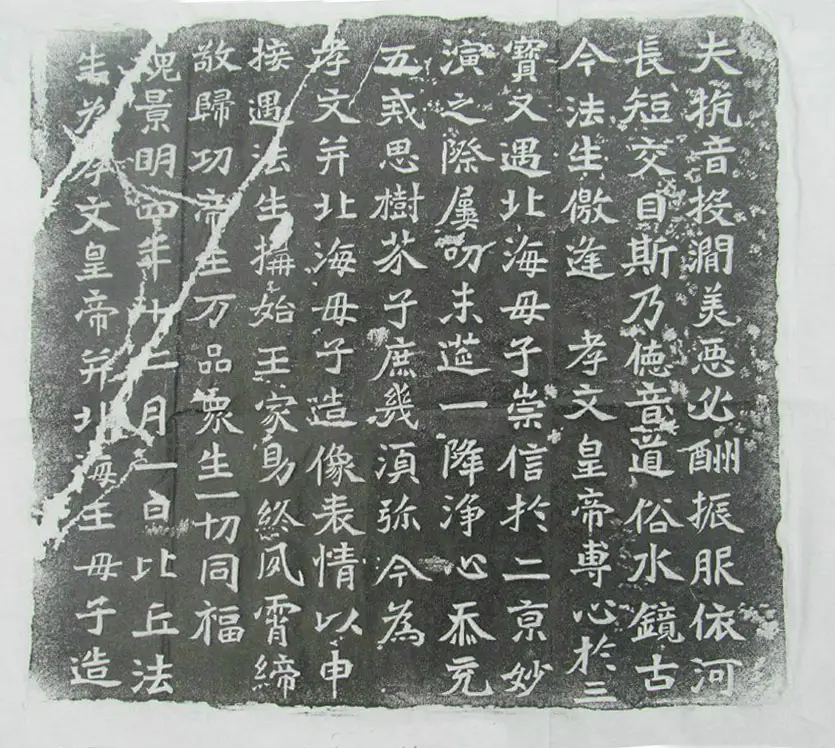 夫抗音投澗美惡必酬振服依河
長短交目斯乃德音道俗水鏡古
今法生儌逢 孝文皇帝專心於三
寶又遇北海母子崇信於二京妙
演之際屢叨末筵一降淨心忝充
五戒思樹芥子庶幾須弥今為
孝文并北海母子造像表情以申
接遇法生構始王家終夙霄締
敬歸功帝王万品眾生一切同福
魏景明四年十二月一日比丘法
生為孝文皇帝并北海王母子造